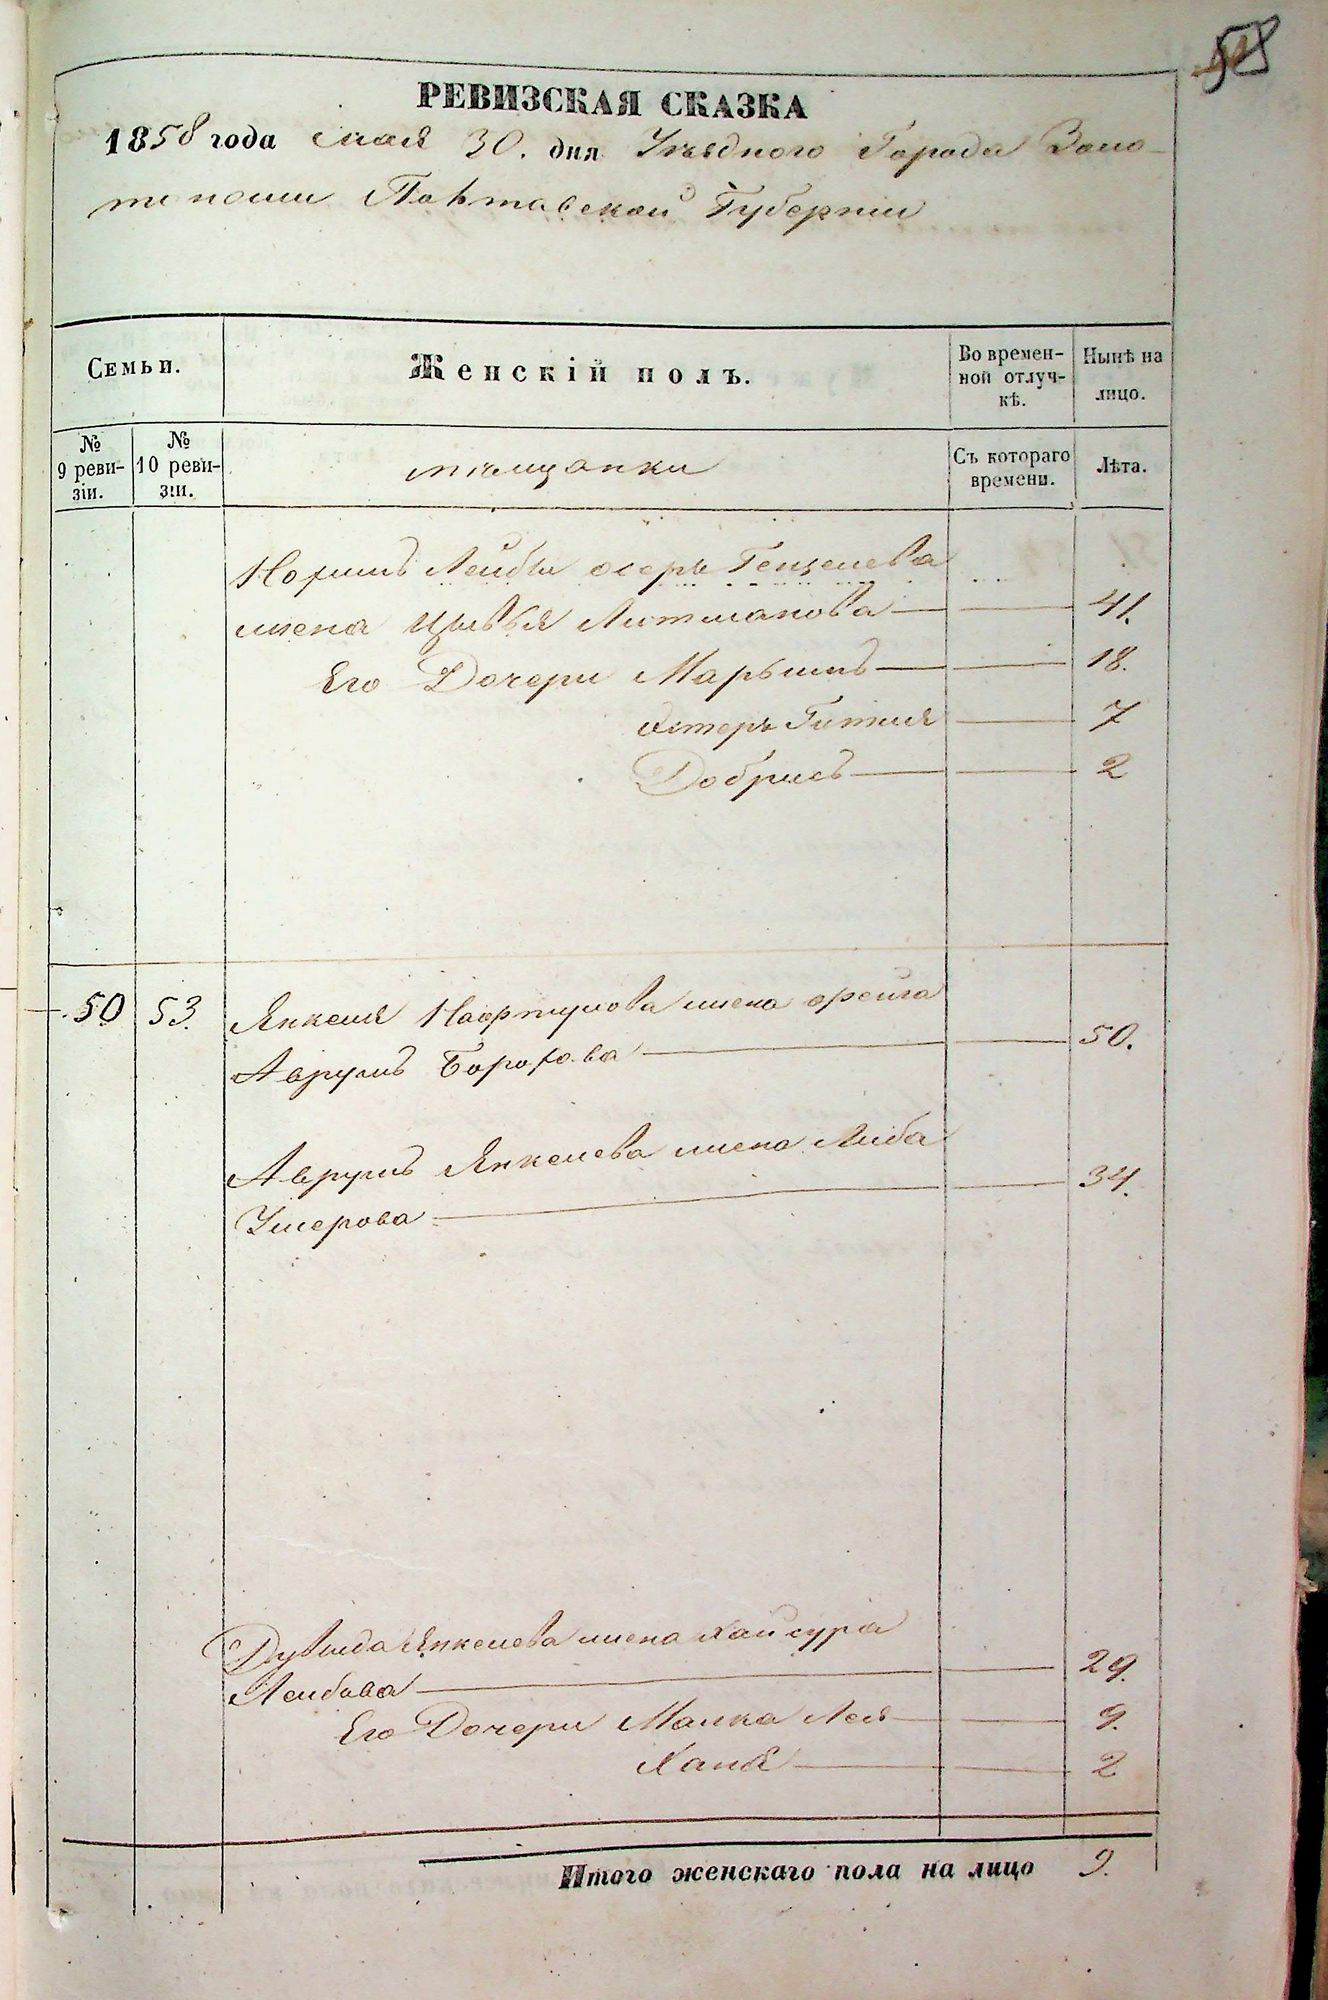 58
РЕВИЗСКАЯ СКАЗКА
1858 года мая 30. дня Уѣзднаго Города Золо-
тоноши Полтавской Губерніи
Семьи.
Женскій полъ.
Во времен-
ной отлуч-
кѣ.
Нынѣ на
лицо.
№
9 реви-
зіи.
№
10 реви-
зіи.
мѣщанки
Съ котораго
времени.
Лѣта.
Лейбы
жена Литманова 41.
Его Дочери Марьямъ 18.
Эстеръ Гитля 7
Добрисъ 2
50 53. Янкеля жена Фрейга
Аврумъ Борохова 50.
Аврумъ Янкелева жена Либа
Умерова 34.
Дувыда Янкелева жена Хай сура
Лейбова 29.
Его Дочери Малка Лея 9.
Ханя 2
Итого женскаго пола на лицо 9.